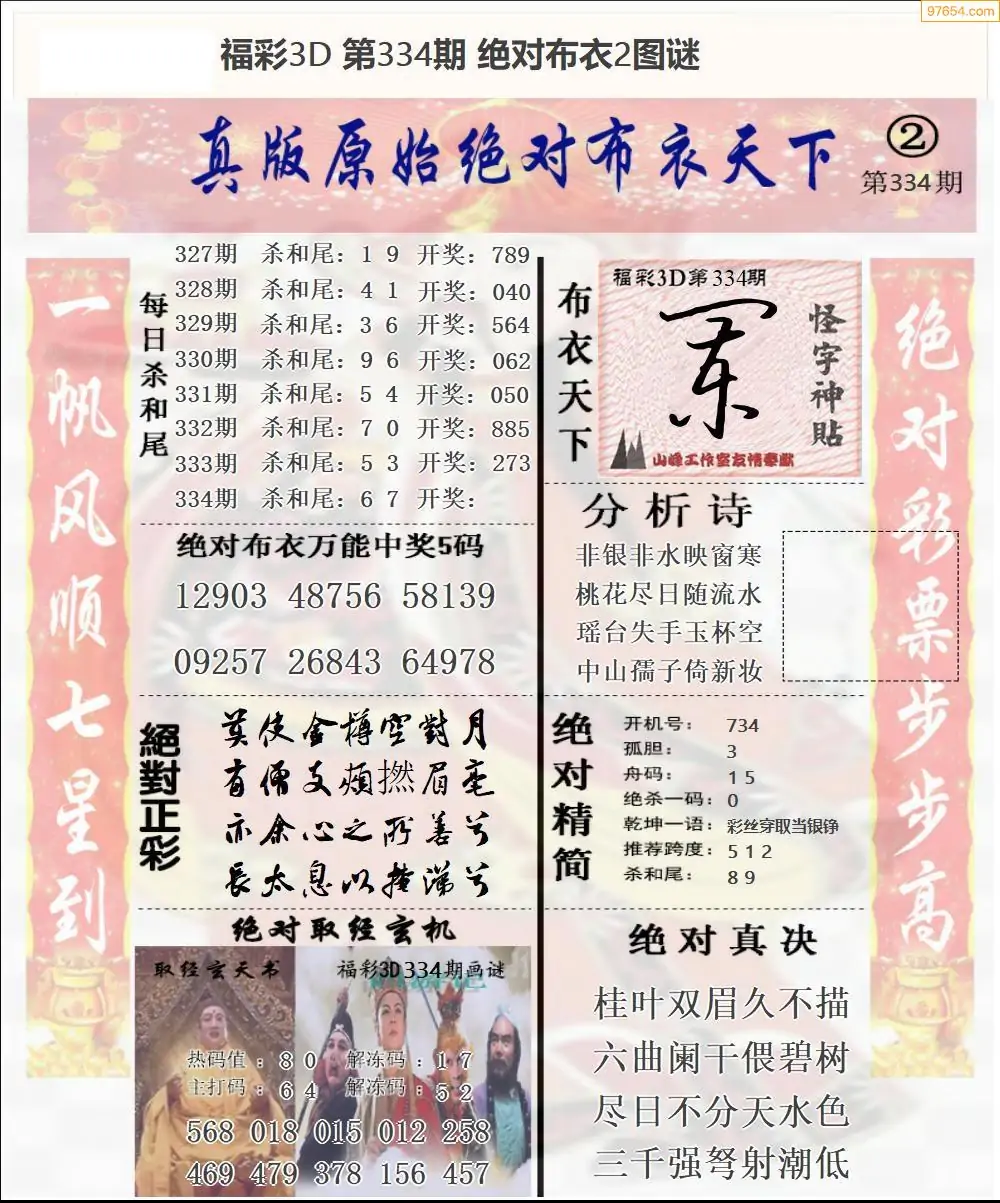 97654.com
福彩3D 第334期 绝对布衣2图谜
真版原始绝对布衣天下
②
第334期
一帆风顺七星到
每日杀和尾
327期 杀和尾：1 9 开奖：789
328期 杀和尾：4 1 开奖：040
329期 杀和尾：3 6 开奖：564
330期 杀和尾：9 6 开奖：062
331期 杀和尾：5 4 开奖：050
332期 杀和尾：7 0 开奖：885
333期 杀和尾：5 3 开奖：273
334期 杀和尾：6 7 开奖：
绝对布衣万能中奖5码
12903 48756 58139
09257 26843 64978
絕對正彩
莫使金樽空對月
有僧支頰撚眉毫
亦余心之所善兮
長太息以掩涕兮
绝对取经玄机
取经玄天书
福彩3D334期画谜
热码值：8 0 解冻码：1 7
主打码：6 4 解冻码：5 2
568 018 015 012 258
469 479 378 156 457
布衣天下
福彩3D第334期
怪字神貼
山峰工作室友情奉献
分析诗
非银非水映窗寒
桃花尽日随流水
瑶台失手玉杯空
中山孺子倚新妆
绝对精简
开机号：734
孤胆：3
舟码：1 5
绝杀一码：0
乾坤一语：彩丝穿取当银铮
推荐跨度：5 1 2
杀和尾：8 9
绝对真决
桂叶双眉久不描
六曲阑干偎碧树
尽日不分天水色
三千强弩射潮低
绝对彩票步步高